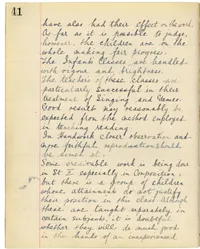 41
have also had their effect on the work.
As far as it is possible to judge,
however, the children are on the
whole making fair progress.
The Infants Classes are handled
with vigour and brightness.
The teachers of these classes are
particularly successful in their
treatment of Singing and
Good results may reasonably be
expected from the method employed
in teaching reading.
In Handwork closer observation and
more faithful reproduction should
be aimed at.
Some creditable work is being done
in St especially in Composition,
but there is a group of children
whose attainments do not justify
their position in the class. Although
these are taught separately in
certain subjects, it is doubtful
whether they will do much good
in the hands of an inexperienced